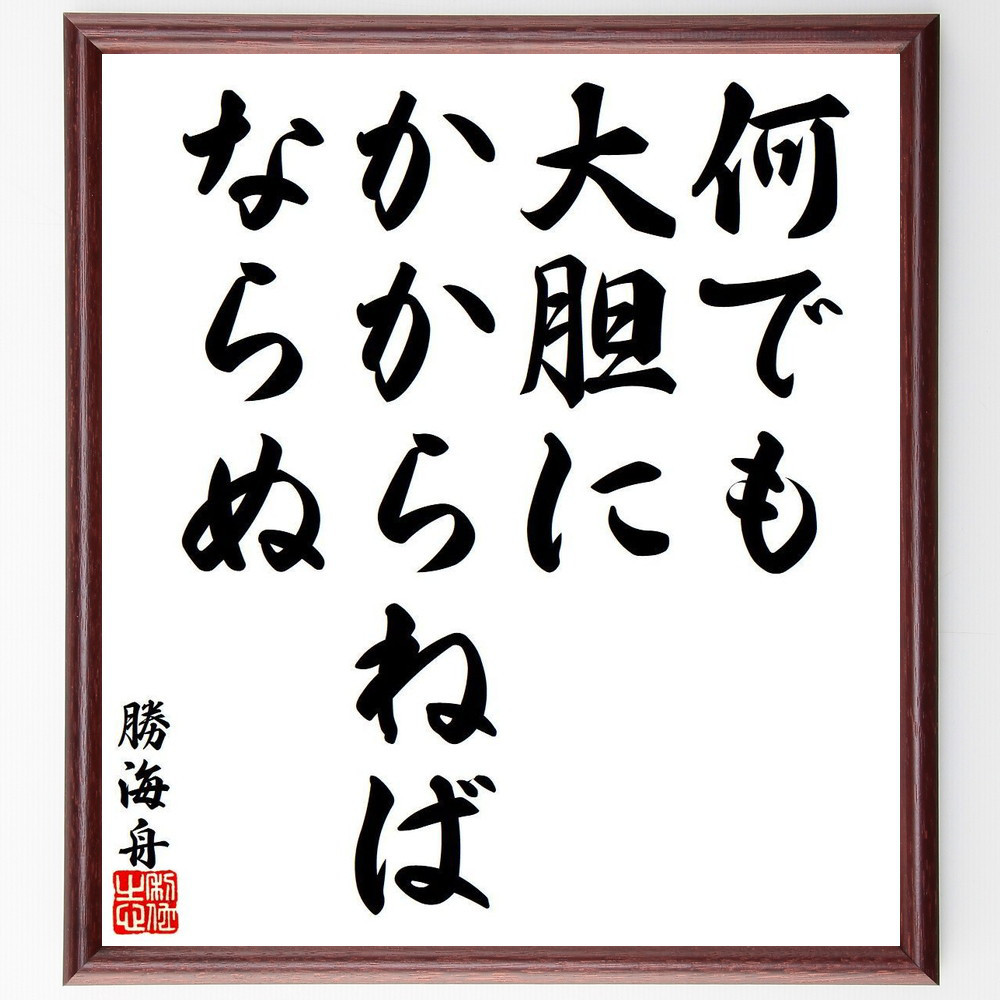 何でも
大胆に
かからねば
ならぬ
勝海舟